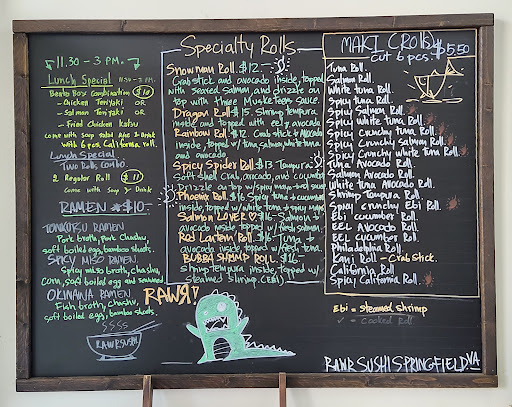 11.30 - 3 PM.
Lunch Special 11.30 - 3 PM.
Bento Box Combination $18
- Chicken Teriyaki OR
- Salmon Teriyaki OR
- Fried Chicken Katsu
come with soup salad and Drink
with 6 pcs California roll.
Lunch Special
Two Rolls Combo
2 Regular Roll $11
come with soup & Drink
RAMEN $10-
TONKOTSU RAMEN
Pork broth, pork Chashu,
soft boiled egg, bamboo shoots.
SPICY MISO RAMEN
Spicy miso broth, chashu,
corn, soft boiled egg and seaweed
OKINAWA RAMEN
Fish broth, Chashu,
soft boiled egg, bamboo shoots.
RAWRSUSHI
Specialty Rolls
Snowman Roll $12-
Crabstick and avocado inside, topped
with seared Salmon, and drizzle on
top with three Musketeers sauce.
Dragon Roll $15. Shrimp tempura
inside and topped with eel & avocado
Rainbow Roll $12. Crabstick & Avocado
inside, topped w/ tuna, salmon, white tuna
and avocado
Spicy Spider Roll $13 Tempura
Soft shell crab, avocado, and cucumber
Drizzle on top w/ spicy mayo & eel sauce
Phoenix Roll $16 Spicy tuna & cucumber
inside, topped w/ white tuna & spicy mayo
Salmon LOVER $16- Salmon &
avocado inside, topped w/ fresh salmon.
Red Lantern Roll $16- Tuna &
avocado inside, topped w/ fresh tuna.
BUBBA SHRIMP ROLL. $16-
shrimp tempura inside, topped w/
steamed shrimp. (EBI)
RAWR!
MAKI (Rolls) $5.50
Cut 6 pcs.
Tuna Roll.
Salmon Roll.
White tuna Roll.
Spicy tuna Roll.
Spicy Salmon Roll.
Spicy White tuna Roll.
Spicy Crunchy tuna Roll.
Spicy Crunchy Salmon Roll.
Spicy Crunchy White tuna Roll.
Tuna Avocado Roll.
Salmon Avocado Roll.
White tuna Avocado Roll.
Shrimp Tempura Roll.
Spicy Crunchy Ebi Roll.
Ebi cucumber Roll.
EEL Avocado Roll.
EEL Cucumber Roll.
Philadelphia Roll.
Kani Roll - Crab stick.
California Roll.
Spicy California Roll.
Ebi = steamed shrimp
✓ = Cooked Roll
RAWR SUSHI SPRINGFIELD VA